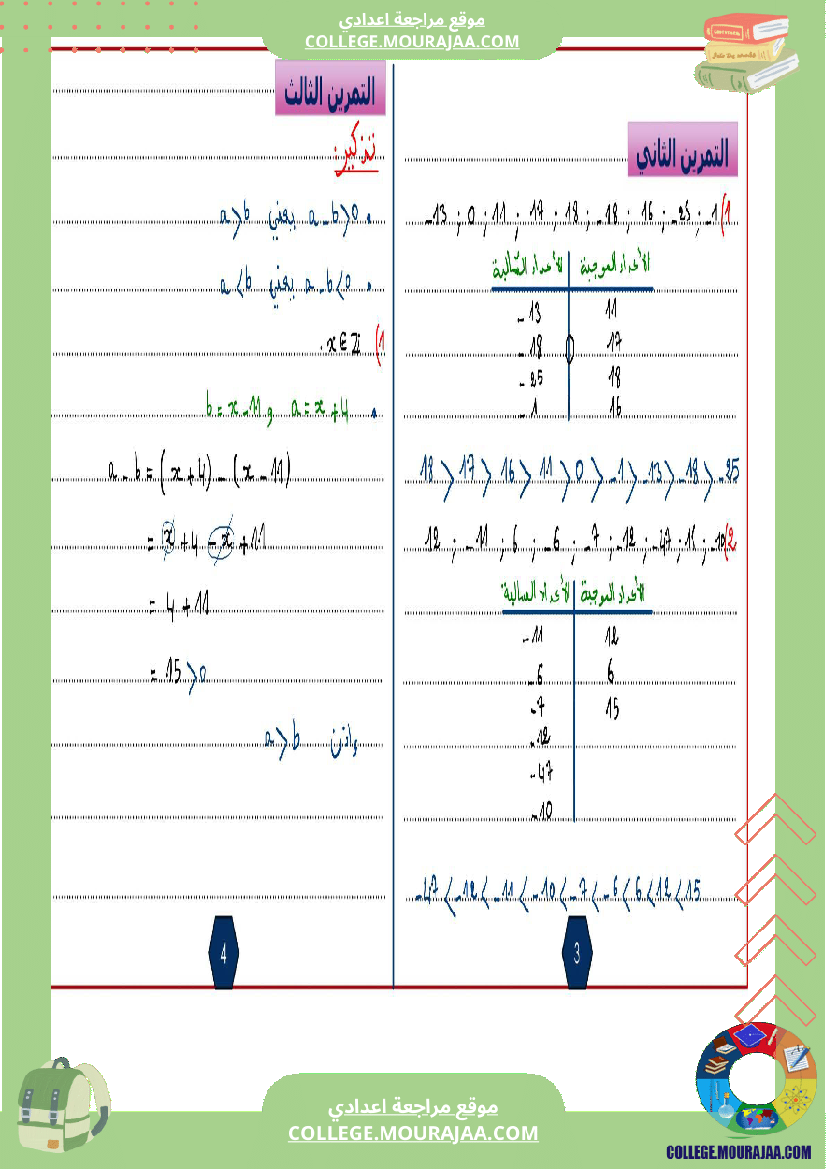 موقع مراجعة اعدادي
COLLEGE.MOURAJAA.COM
التمرين الثاني
1) -13 ; 0 ; 11 ; 17 ; 18 ; -18 ; 16 ; -25 ; -1
الأعداد الموجبة الأعداد السالبة
11 -13
17 0 -18
18 -25
16 -1
18 > 17 > 16 > 11 > 0 > -1 > -13 > -18 > -25
2) 12 ; -11 ; 6 ; -6 ; -7 ; -12 ; -47 ; 15 ; -10
الأعداد الموجبة الأعداد السالبة
12 -11
6 -6
15 -7
-12
-47
-10
-47 < -12 < -11 < -10 < -7 < -6 < 6 < 12 < 15
3
التمرين الثالث
تذكير:
• a - b > 0 يعني a > b
• a - b < 0 يعني a < b
1) x ∈ ℤ .
• a = x + 4 و b = x - 11
a - b = (x + 4) - (x - 11)
= x + 4 - x + 11
= 4 + 11
= 15 > 0
وإذن a > b
4
موقع مراجعة اعدادي
COLLEGE.MOURAJAA.COM
COLLEGE.MOURAJAA.COM